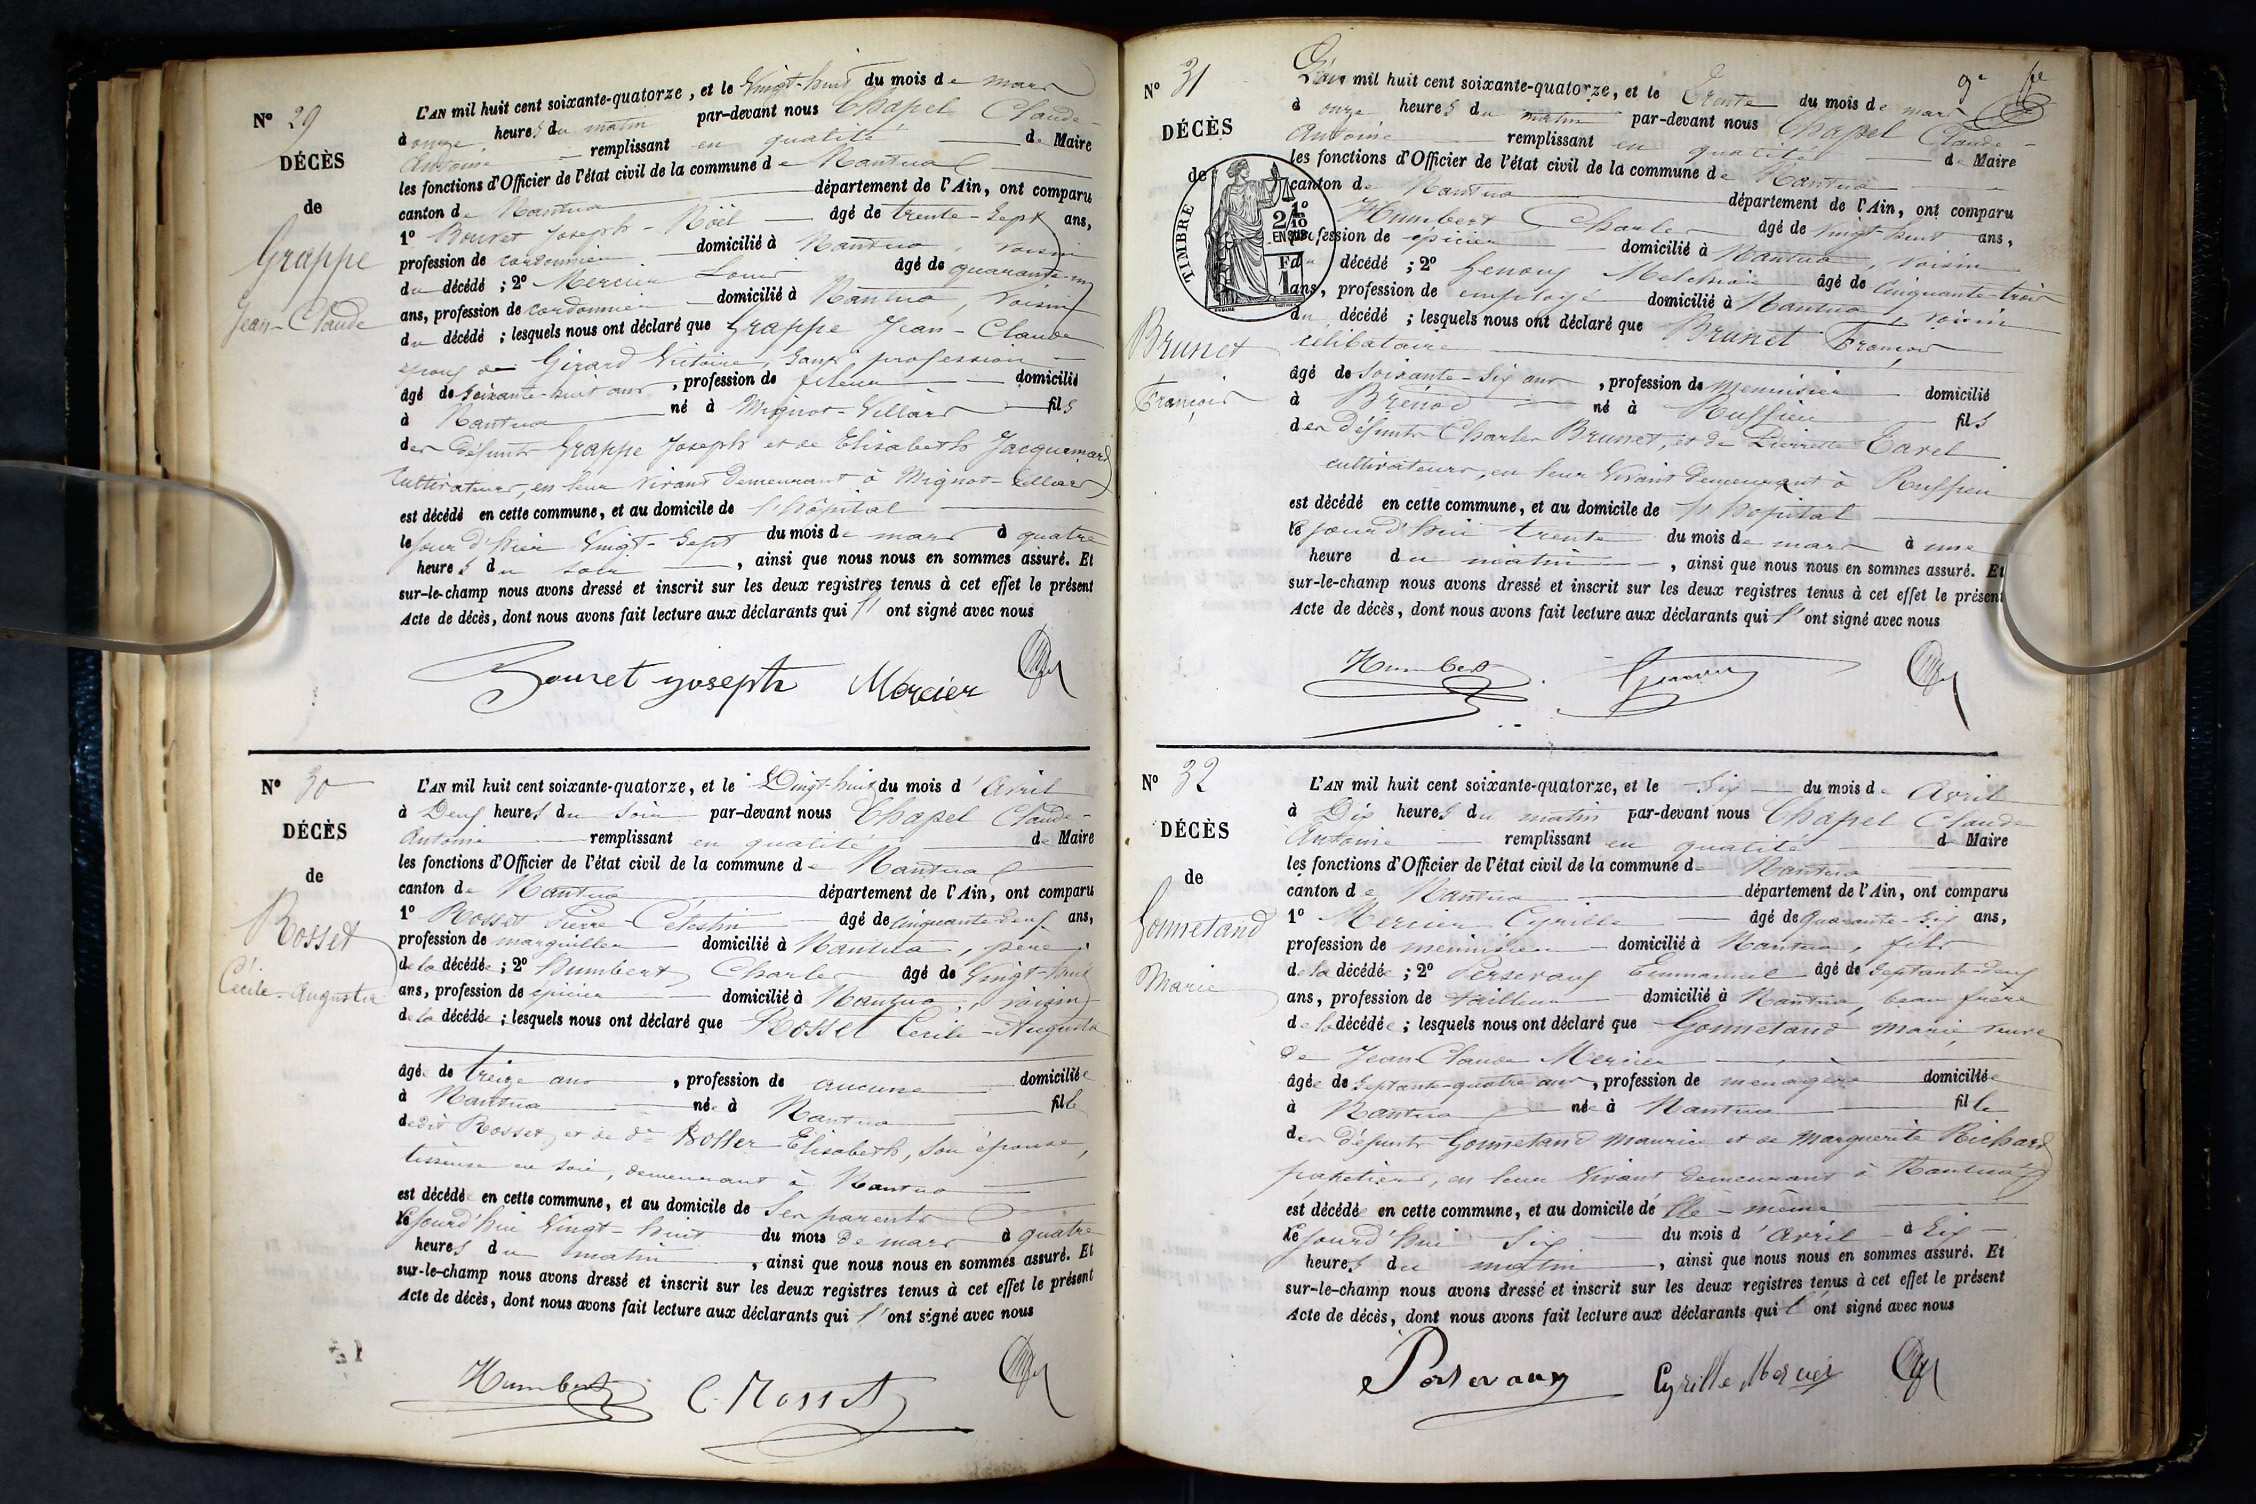 N° 29
DÉCÈS
de
Grappe
Jean-Claude
L'AN mil huit cent soixante-quatorze, et le Vingt-huit du mois de mars
à onze heures du matin par-devant nous Chapel Claude-
Antoine remplissant en qualité de Maire
les fonctions d'Officier de l'état civil de la commune de Nantua
canton de Nantua département de l'Ain, ont comparu
1° Bouvet Joseph-Noël âgé de trente-sept ans,
profession de cordonnier domicilié à Nantua, voisin
du décédé ; 2° Mercier Louis âgé de quarante-un
ans, profession de cordonnier domicilié à Nantua, voisin
du décédé ; lesquels nous ont déclaré que Grappe Jean-Claude
époux de Girard Victoire, sans profession
âgé de soixante-huit ans, profession de fileur domicilié
à Nantua né à Mignot-Villars fils
des défunts Grappe Joseph et de Elisabeth Jacquemard
Cultivateurs, en leur vivant demeurant à Mignot-Villars
est décédé en cette commune, et au domicile de l'hôpital
le jour d'hier Vingt-Sept du mois de mars à quatre
heures du soir, ainsi que nous nous en sommes assuré. Et
sur-le-champ nous avons dressé et inscrit sur les deux registres tenus à cet effet le présent
Acte de décès, dont nous avons fait lecture aux déclarants qui l' ont signé avec nous
Bouvet joseph Mercier
N° 30
DÉCÈS
de
Rosset
Cécile-Augusta
L'AN mil huit cent soixante-quatorze, et le Vingt-huit du mois d'Avril
à Deux heures du Soir par-devant nous Chapel Claude-
Antoine remplissant en qualité de Maire
les fonctions d'Officier de l'état civil de la commune de Nantua
canton de Nantua département de l'Ain, ont comparu
1° Rosset Pierre Célestin âgé de cinquante-deux ans,
profession de marguiller domicilié à Nantua, père
de la décédée ; 2° Humbert Charles âgé de Vingt-huit
ans, profession de épicier domicilié à Nantua, voisin
de la décédée ; lesquels nous ont déclaré que Rosset Cécile-Augusta
âgée de treize ans, profession de aucune domiciliée
à Nantua née à Nantua fille
dudit Rosset, et de de Bolley Elisabeth, son épouse,
tisseuse en soie, demeurant à Nantua
est décédé en cette commune, et au domicile de Ses parents
le jourd'hui Vingt-huit du mois de mars à quatre
heures du matin, ainsi que nous nous en sommes assuré. Et
sur-le-champ nous avons dressé et inscrit sur les deux registres tenus à cet effet le présent
Acte de décès, dont nous avons fait lecture aux déclarants qui l' ont signé avec nous
Humbert C. Rosset
N° 31
DÉCÈS
de
TIMBRE
2/10
EN SUS
Brunet
François
L'an mil huit cent soixante-quatorze, et le trente du mois de mars
à onze heures du matin par-devant nous Chapel Claude-
Antoine remplissant en qualité de Maire
les fonctions d'Officier de l'état civil de la commune de Nantua
canton de Nantua département de l'Ain, ont comparu
1° Humbert Charles âgé de Vingt-huit ans,
profession de épicier domicilié à Nantua, voisin
du décédé ; 2° Genoux Melchior âgé de cinquante-trois
ans, profession de employé domicilié à Nantua, voisin
du décédé ; lesquels nous ont déclaré que Brunet François
célibataire
âgé de Soixante-six ans, profession de Menuisier domicilié
à Brénod né à Ruffieu fils
des défunts Charles Brunet, et de Pierrette Carel
cultivateurs, en leur vivant demeurant à Ruffieu
est décédé en cette commune, et au domicile de l'hopital
le jourd'hui trente du mois de mars à une
heure du matin, ainsi que nous nous en sommes assuré. Et
sur-le-champ nous avons dressé et inscrit sur les deux registres tenus à cet effet le présent
Acte de décès, dont nous avons fait lecture aux déclarants qui l' ont signé avec nous
Humbert Genoux
N° 32
DÉCÈS
de
Gonnetand
Marie
L'AN mil huit cent soixante-quatorze, et le Six du mois de Avril
à Dix heures du matin par-devant nous Chapel Claude
Antoine remplissant en qualité de Maire
les fonctions d'Officier de l'état civil de la commune de Nantua
canton de Nantua département de l'Ain, ont comparu
1° Mercier Cyrille âgé de Quarante-six ans,
profession de menuisier domicilié à Nantua, fils
de la décédée ; 2° Perservaux Emmanuel âgé de Septante-deux
ans, profession de tailleur domicilié à Nantua, beau frère
de la décédée ; lesquels nous ont déclaré que Gonnetand Marie, veuve
de Jean-Claude Mercier
âgée de Septante-quatre ans, profession de menagère domiciliée
à Nantua née à Nantua fille
des défunts Gonnetand Maurice et de Marguerite Richard
en leur vivant demeurant à Nantua
est décédée en cette commune, et au domicile de elle-même
le jourd'hui Six du mois d'Avril à Six
heures du matin, ainsi que nous nous en sommes assuré. Et
sur-le-champ nous avons dressé et inscrit sur les deux registres tenus à cet effet le présent
Acte de décès, dont nous avons fait lecture aux déclarants qui l' ont signé avec nous
Perservaux Cyrille Mercier